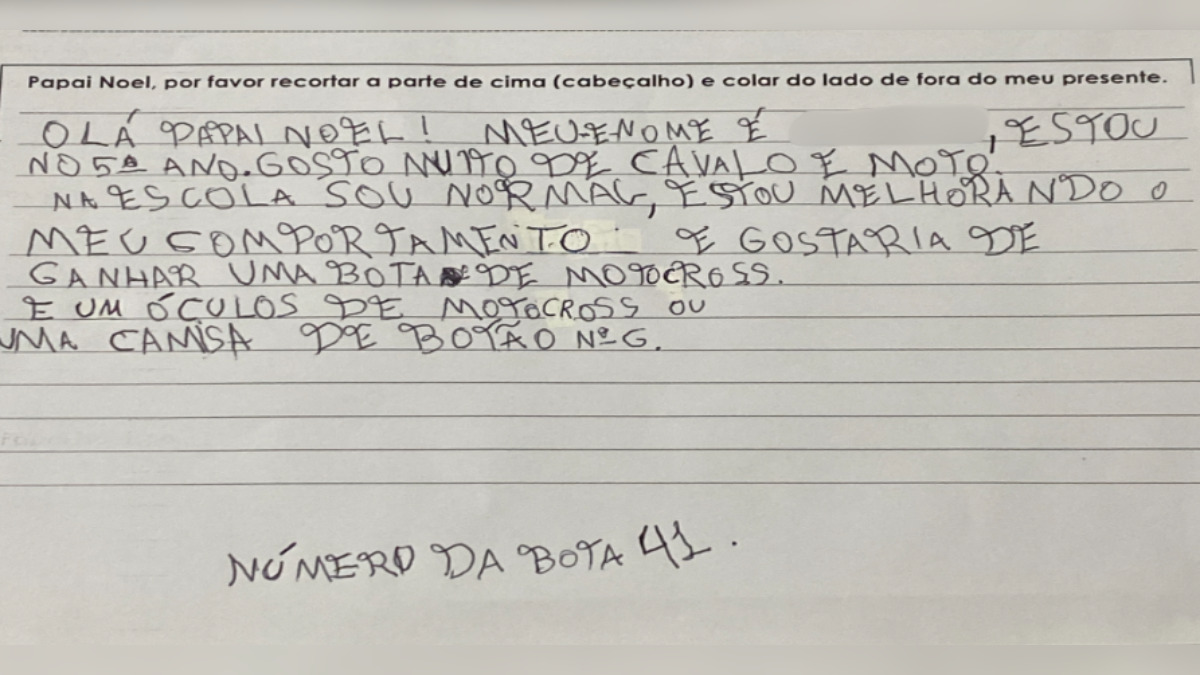 Papai Noel, por favor recortar a parte de cima (cabeçalho) e colar do lado de fora do meu presente.
OLÁ PAPAI NOEL! MEU-E-NOME É , ESTOU
NO 5ª ANO. GOSTO MUITO DE CAVALO E MOTO.
NA ESCOLA SOU NORMAL, ESTOU MELHORANDO O
MEU COMPORTAMENTO E GOSTARIA DE
GANHAR UMA BOTA DE MOTOCROSS.
E UM ÓCULOS DE MOTOCROSS OU
UMA CAMISA DE BOTÃO Nº G.
NÚMERO DA BOTA 41.